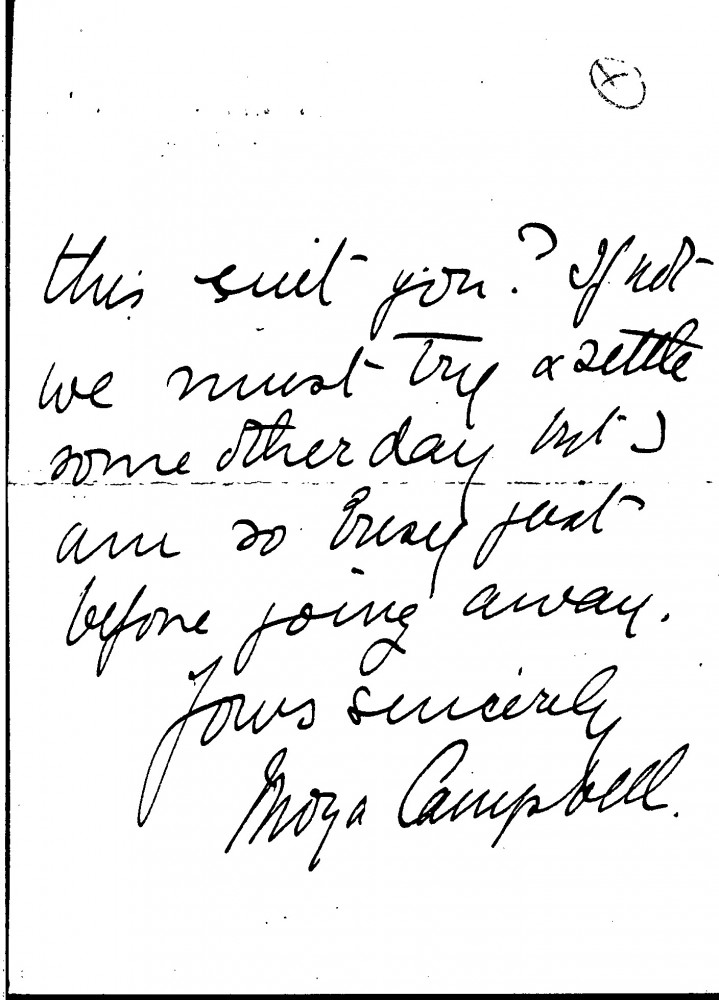 this suit you? If not
we must try & settle
some other day but I
am so busy just
before going away.
Yours sincerely
Moya Campbell.